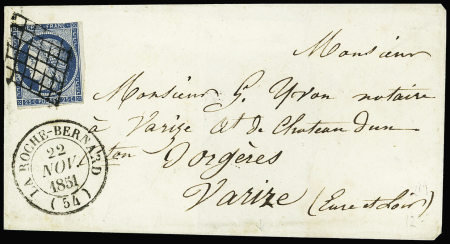 Monsieur
Monsieur G. Yvon notaire
à Varize Ct de Chateaudun
ton Orgères
Varize (Eure et Loir)
LA ROCHE-BERNARD
22
NOV.
1851
(54)